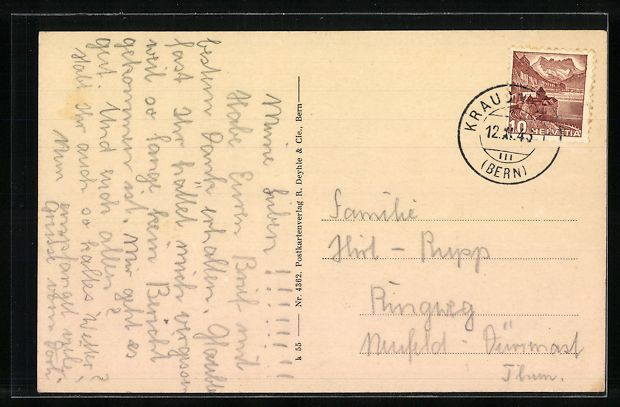 Meine Lieben !!!!!!!
Habe Euren Brief mit
bestem Dank erhalten. Glaubte
fast Ihr hättet mich vergessen
weil so lange kein Bericht
gekommen ist. Mir geht es
gut. Und euch allen?
Habt Ihr auch so kaltes Wetter?
Nun empfanget viele
Grüsse vom
k 55 — Nr. 4362. Postkartenverlag R. Deyhle & Cie., Bern
KRAU
12.XI.43
III
(BERN)
10 HELVETIA
Familie
Hirt - Rupp
Ringweg
Neufeld - Dürrenast
Thun.